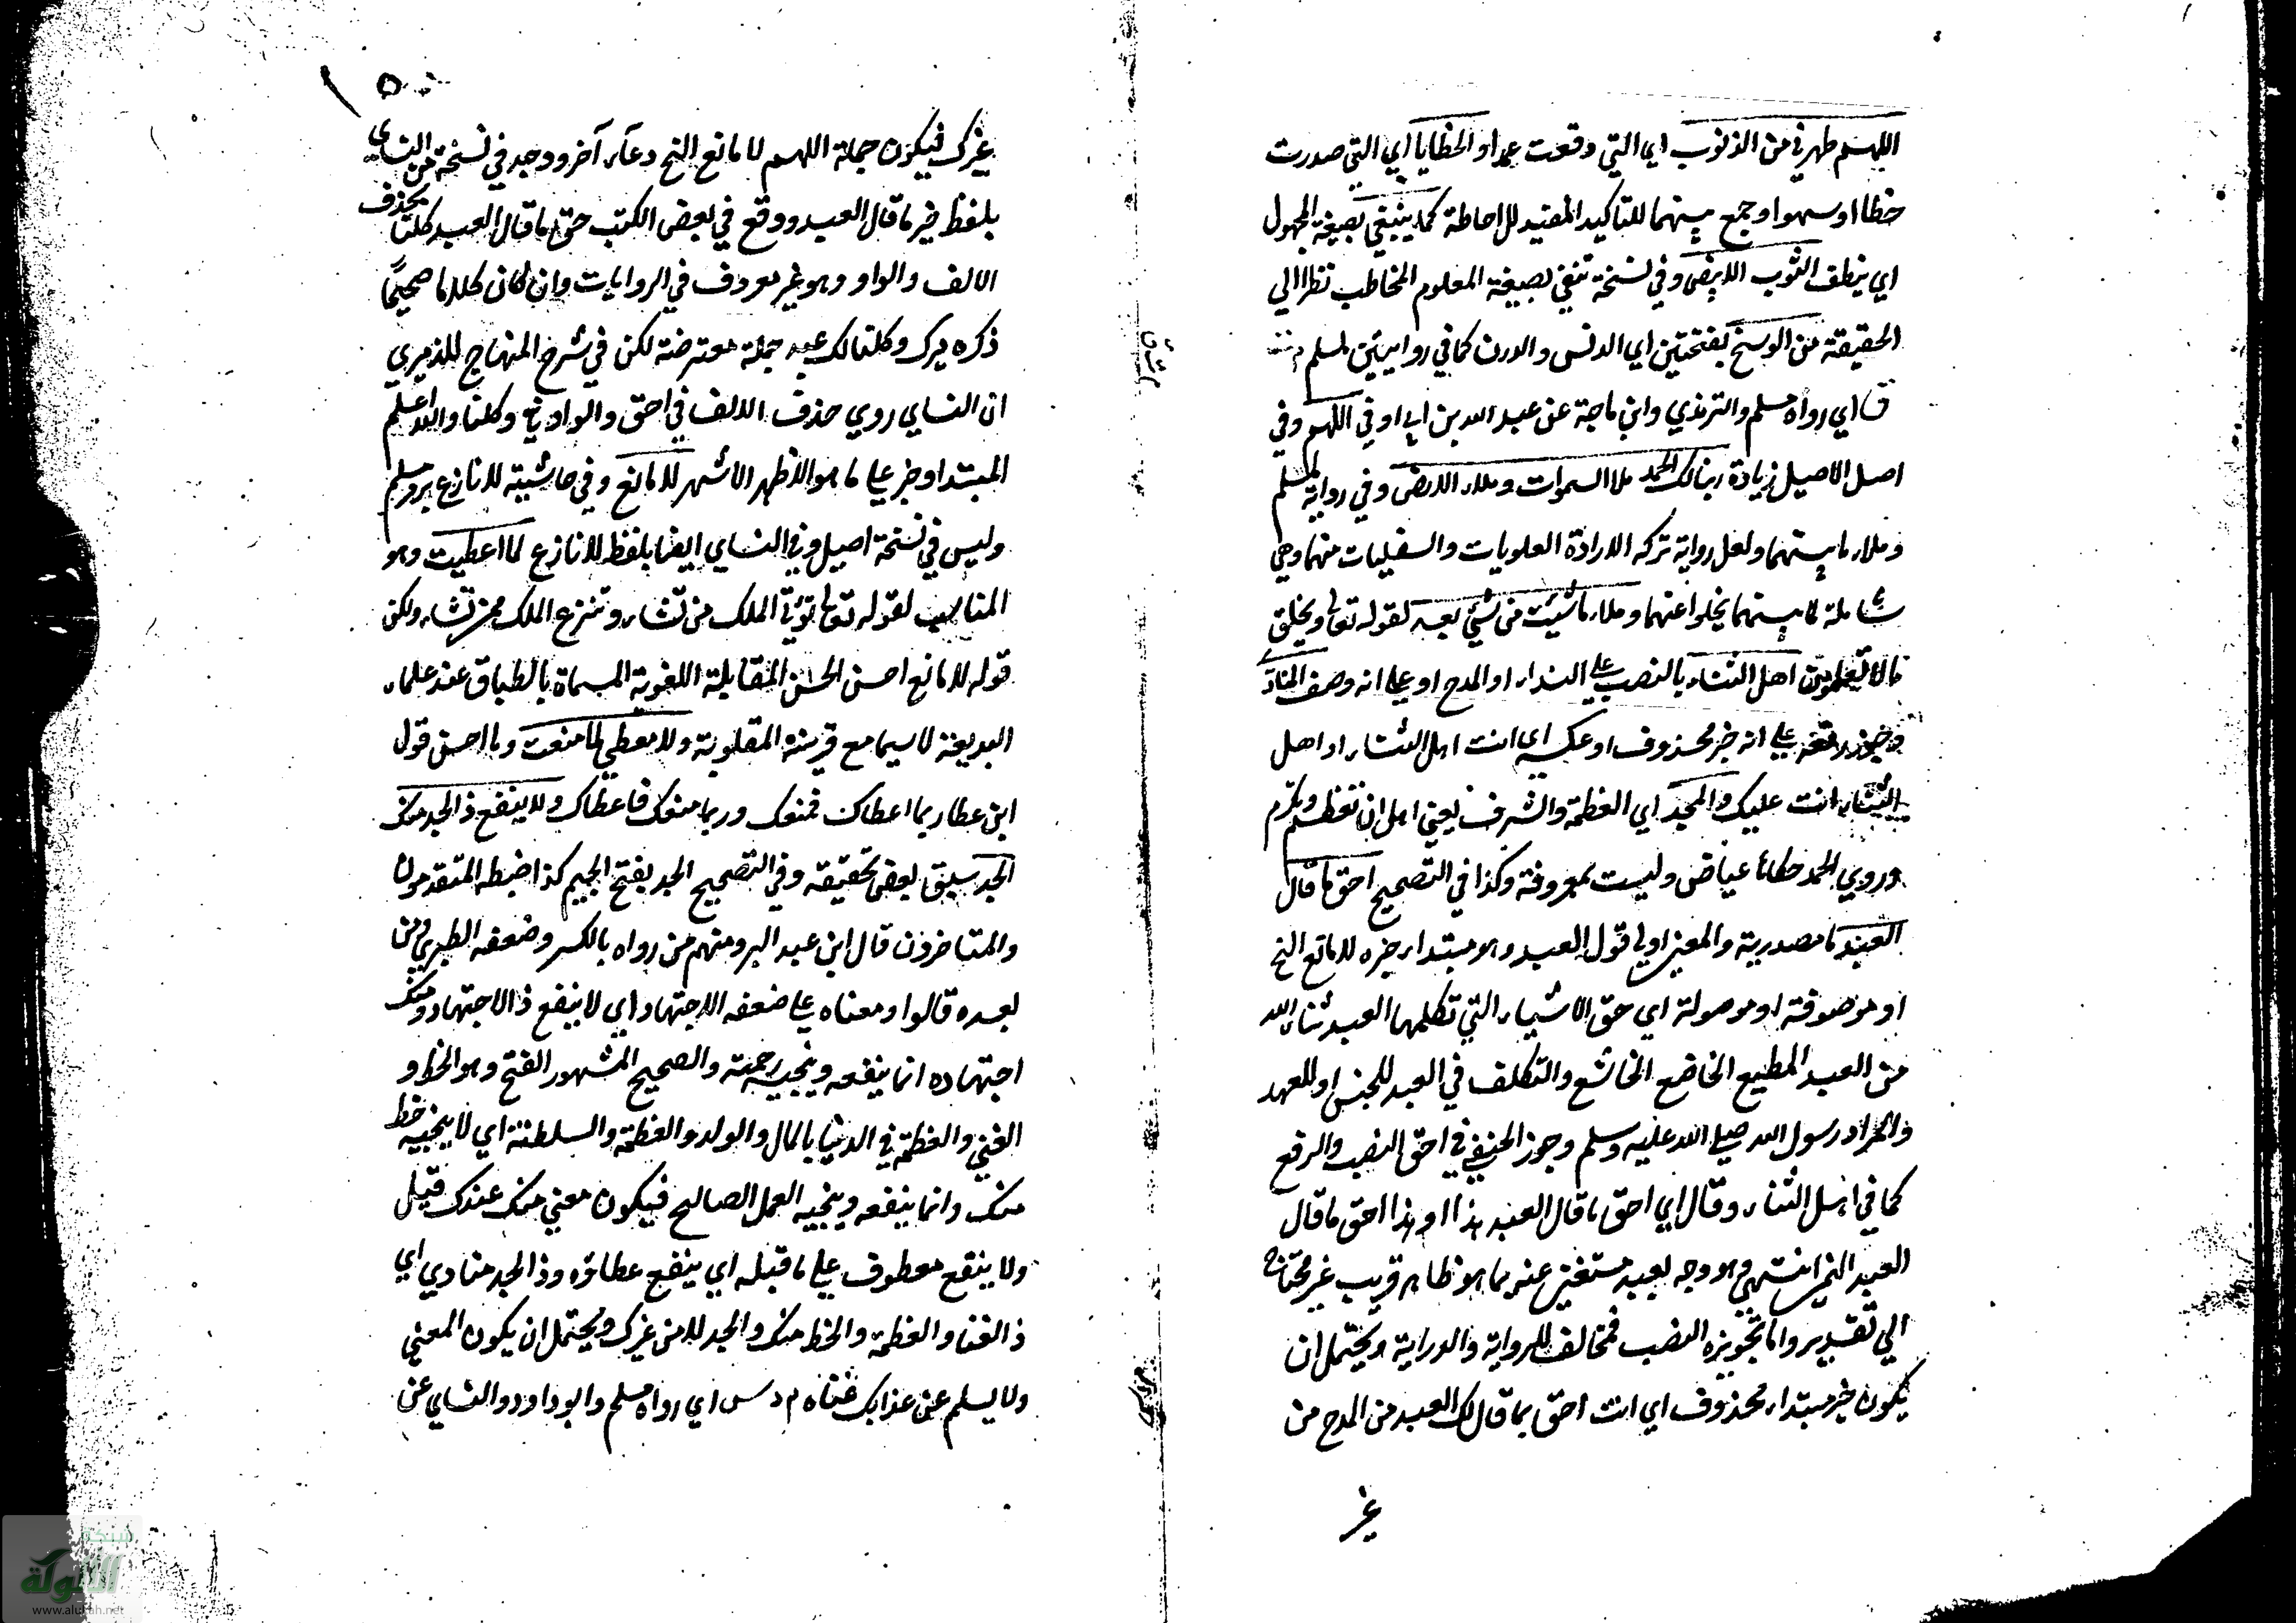 اللهم طهرني من الذنوب اي التي وقعت عمدا والخطايا اي التي صدرت
خطا او سهوا وجمع بينهما للتاكيد المفيد للاحاطة كما ينبغي بصيغة المجهول
اي ينظف الثوب الابيض وفي نسخة تنقي بصيغة المعلوم المخاطب نظرا الي
الحقيقة من الوسخ بفتحتين اي الدنس والدرن كما في روايتين لمسلم م ت
ق اي رواه مسلم والترمذي وابن ماجة عن عبد الله بن ابي اوفي اللهم وفي
اصل الاصيل زيادة ربنا لك الحمد ملا السموات وملاء الارض وفي رواية لمسلم
وملاء ما بينهما ولعل رواية تركه لارادة العلويات والسفليات منهما وهي
شاملة لما بينهما يخلوا عنهما وملاء ما شيئت من شيئ بعد لقوله تعالي ويخلق
ما لا تعلمون اهل الثناء بالنصب علي النداء او المدح او علي انه وصف المناد
وجوز رفعه علي انه خبر محذوف او عكسه اي انت اهل الثناء او اهل
الثناء انت عليك والمجد اي العظمة والشرف يعني اهل ان تعظم وتكرم
وروي الحمد حكاه عياض وليست بمعروفة وكذا في التصحيح احق ما قال
العبد ما مصدرية والمعني اولي قول العبد وهو مبتداء خبره لا مانع الخ
او موصوفة او موصولة اي حق الاشياء التي تكلمها العبد ثناء الله
من العبد المطيع الخاضع الخاشع والتكلف في العبد للجنس او للعهد
والمراد رسول الله صلي الله عليه وسلم وجوز الحنفي في احق النصب والرفع
كما في اهل الثناء وقال اي احق ما قال العبد هذا او هذا احق ما قال
العبد الخ انتهي وهو وجه بعيد مستغني عنه بما هو ظاهر قريب غير محتاج
الي تقدير واما تجويزه النصب فمخالف للرواية والدراية ويحتمل ان
يكون خبر مبتداء محذوف اي انت احق بما قال لك العبد من المدح من
غير
١٥٠
غيرك فيكون جملة اللهم لا مانع الخ دعاء آخر ووجد في نسخة من النساي
بلفظ خير ما قال العبد ووقع في بعض الكتب حق ما قال العبد كلنا بحذف
الالف والواو وهو غير معروف في الروايات وان كان كلاما صحيحا
ذكره ميرك وكلنا لك عبد جملة معترضة لكن في شرح المنهاج للدميري
ان النساي روي حذف الالف في احق والواو في وكلنا والله اعلم
المبتدا وخبر علي ما هو الاظهر الاشهر لا مانع وفي حاشية لا نازع برمز مسلم
وليس في نسخة اصيل وفي النساي ايضا بلفظ لا نازع لما اعطيت وهو
المناسب لقوله تعالي تؤتي الملك من تشاء وتنزع الملك ممن تشاء ولكن
قوله لا مانع احسن لحسن المقابلة اللغوية المسماة بالطباق عند علماء
البديعة لا سيما مع قرينة المقلوبة ولا معطي لما منعت وما احسن قول
ابن عطا ربما اعطاك فمنعك وربما منعك فاعطاك ولا ينفع ذا الجد منك
الجد سبق بعض تحقيقه وفي التصحيح الجد بفتح الجيم كذا ضبطه المتقدمون
والمتاخرون قال ابن عبد البر ومنهم من رواه بالكسر وضعفه الطبري ومن
بعده قالوا ومعناه علي ضعفه الاجتهاد اي لا ينفع ذا الاجتهاد ومنك
اجتهاده انما ينفعه وينجيه رحمته والصحيح المشهور الفتح وهو الحظ و
الغني والعظمة في الدنيا بالمال والولد والعظمة والسلطنة اي لا ينجيه حظ
منك وانما ينفعه وينجيه العمل الصالح فيكون معني منك عندك قيل
ولا ينفع معطوف علي ما قبله اي ينفع عطاؤه وذا الجد منادي اي
ذا الغنا والعظمة والحظ منك والجد لا من غيرك ويحتمل ان يكون المعني
ولا يسلم عن عذابك غناه م د س اي رواه مسلم وابو داود والنساي عن
شبكة
الألوكة
www.alukah.net